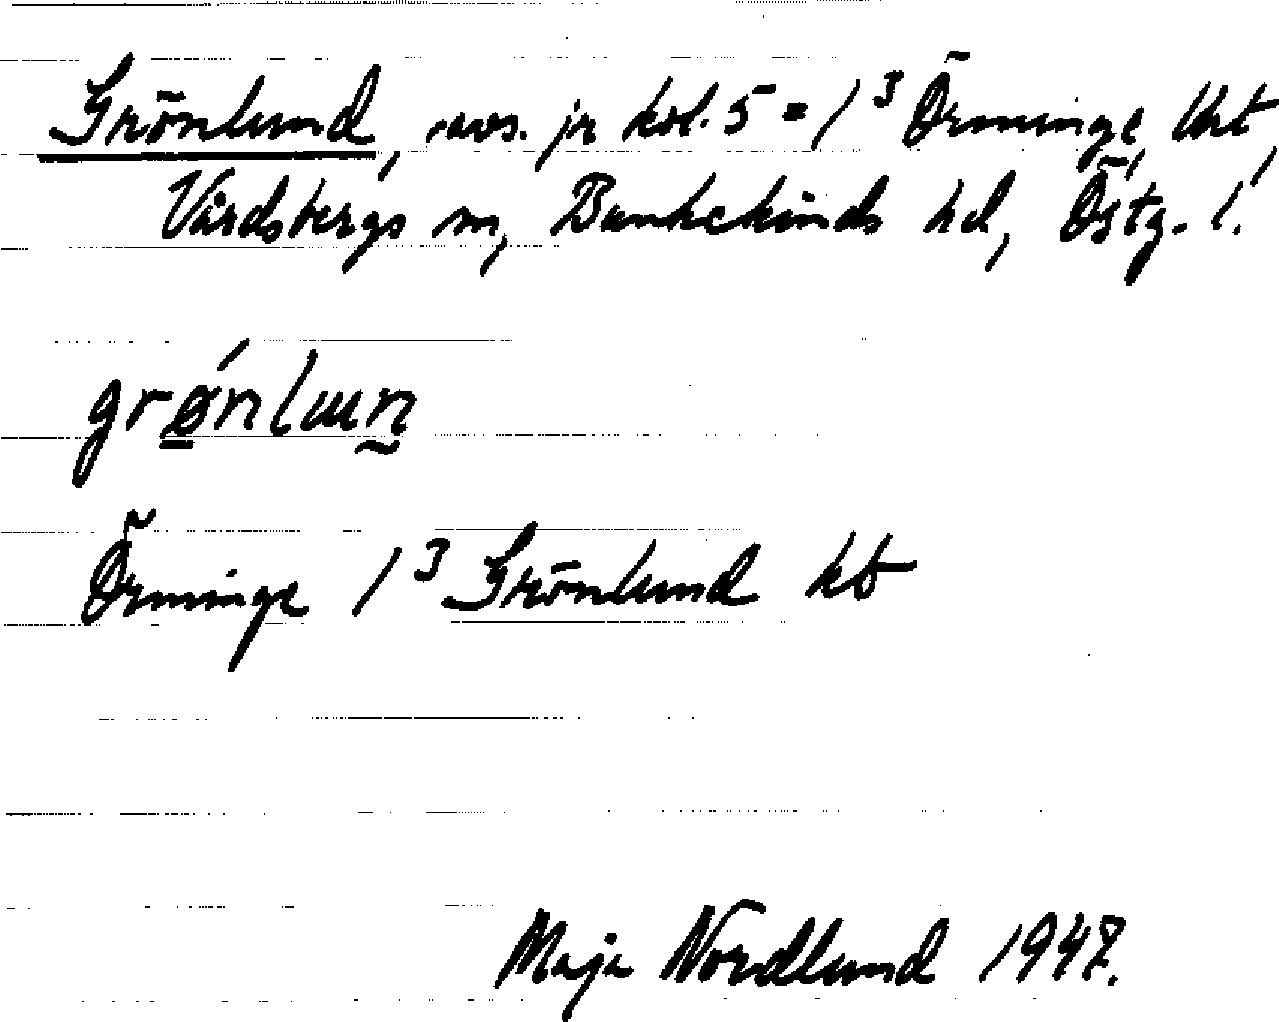 Grönlund, avs. jr kol. 5 = 1³ Örminge, Urt,
Vårdsbergs sn, Bankekinds hd, Östg. l.
grǿnlun
Örminge 1³ Grönlund kb
Maja Nordlund 1947.